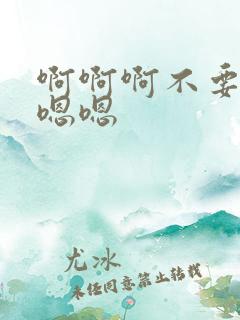 啊啊啊不要
嗯嗯
尤冰
未经同意禁止转载